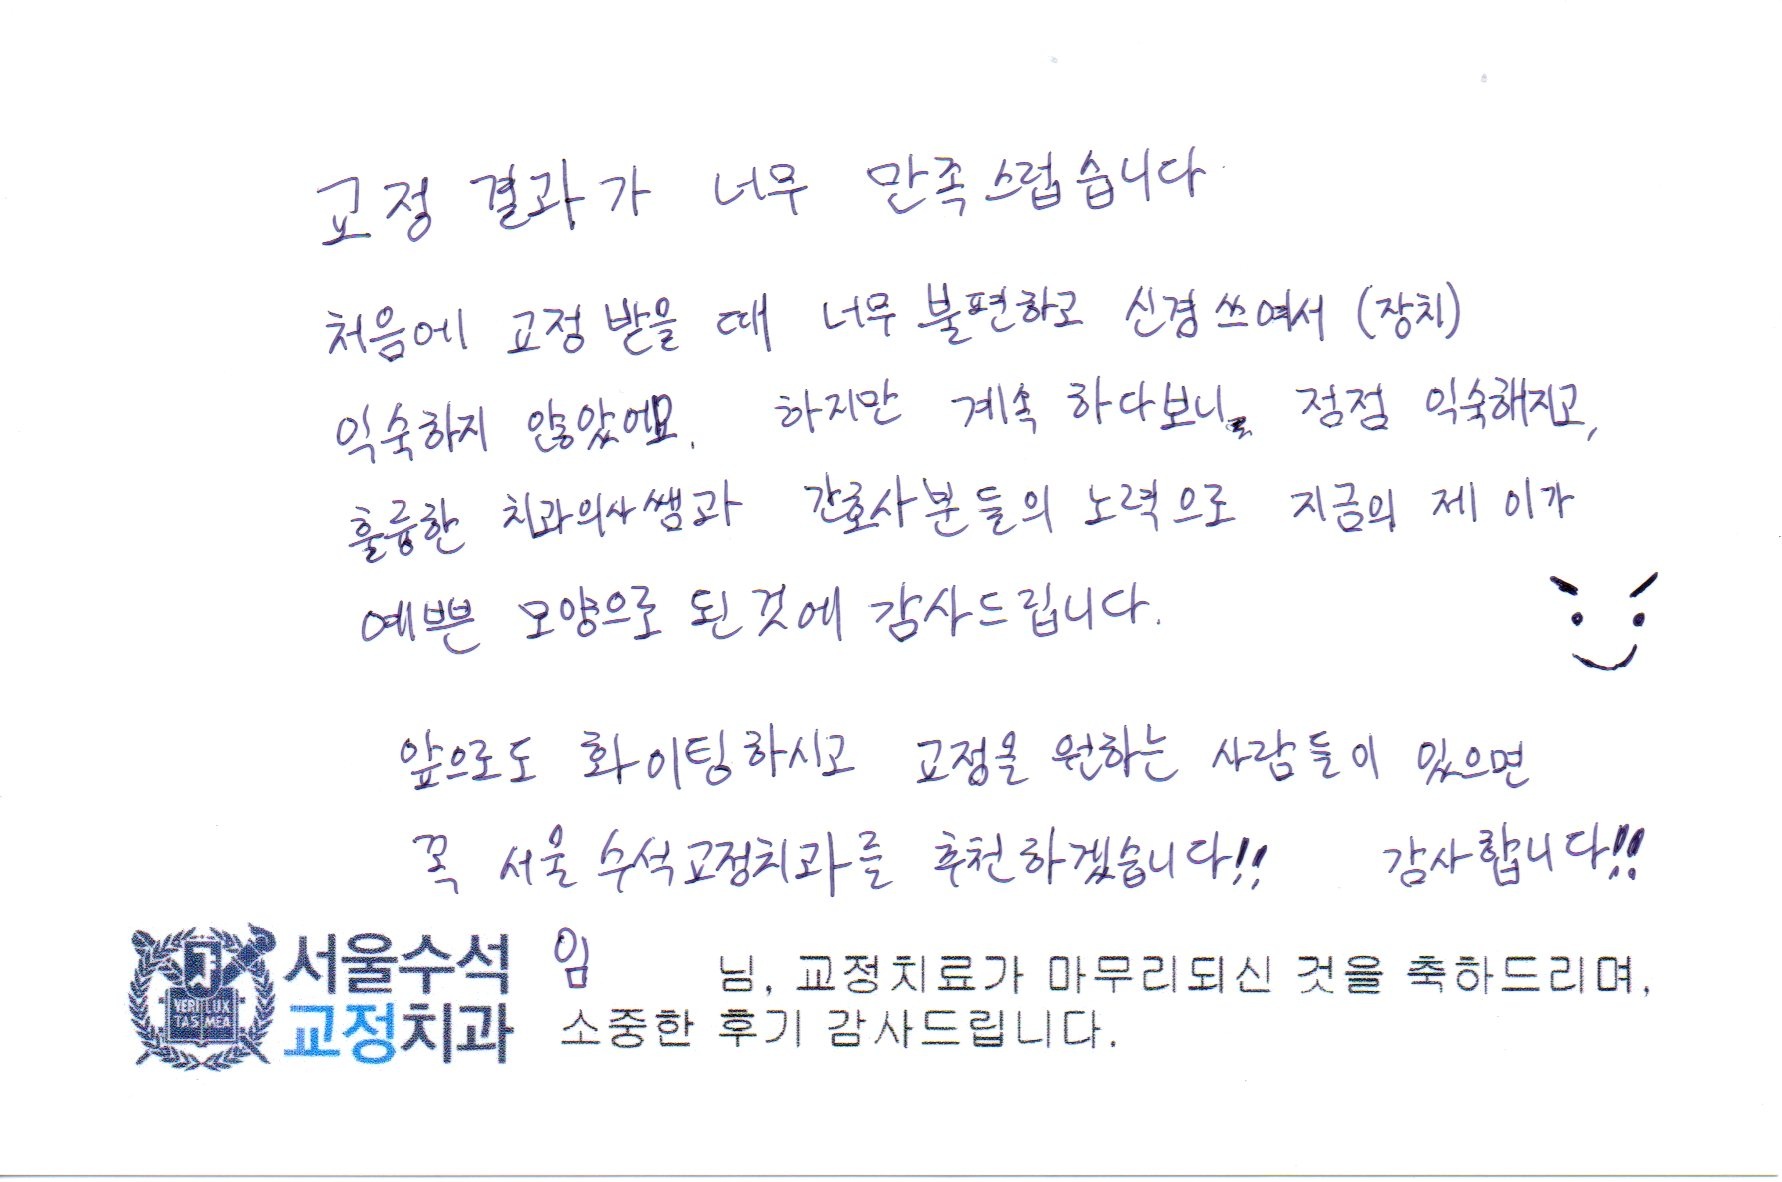 교정 결과가 너무 만족스럽습니다
처음에 교정 받을 때 너무 불편하고 신경쓰여서 (장치)
익숙하지 않았어요. 하지만 계속 하다보니 점점 익숙해지고,
훌륭한 치과의사쌤과 간호사분들의 노력으로 지금의 제 이가
예쁜 모양으로 된 것에 감사드립니다.
앞으로도 화이팅하시고 교정을 원하는 사람들이 있으면
꼭 서울 수석교정치과를 추천하겠습니다!! 감사합니다!!
서울수석
교정치과
VERI LUX
TAS MEA
임 님, 교정치료가 마무리되신 것을 축하드리며,
소중한 후기 감사드립니다.